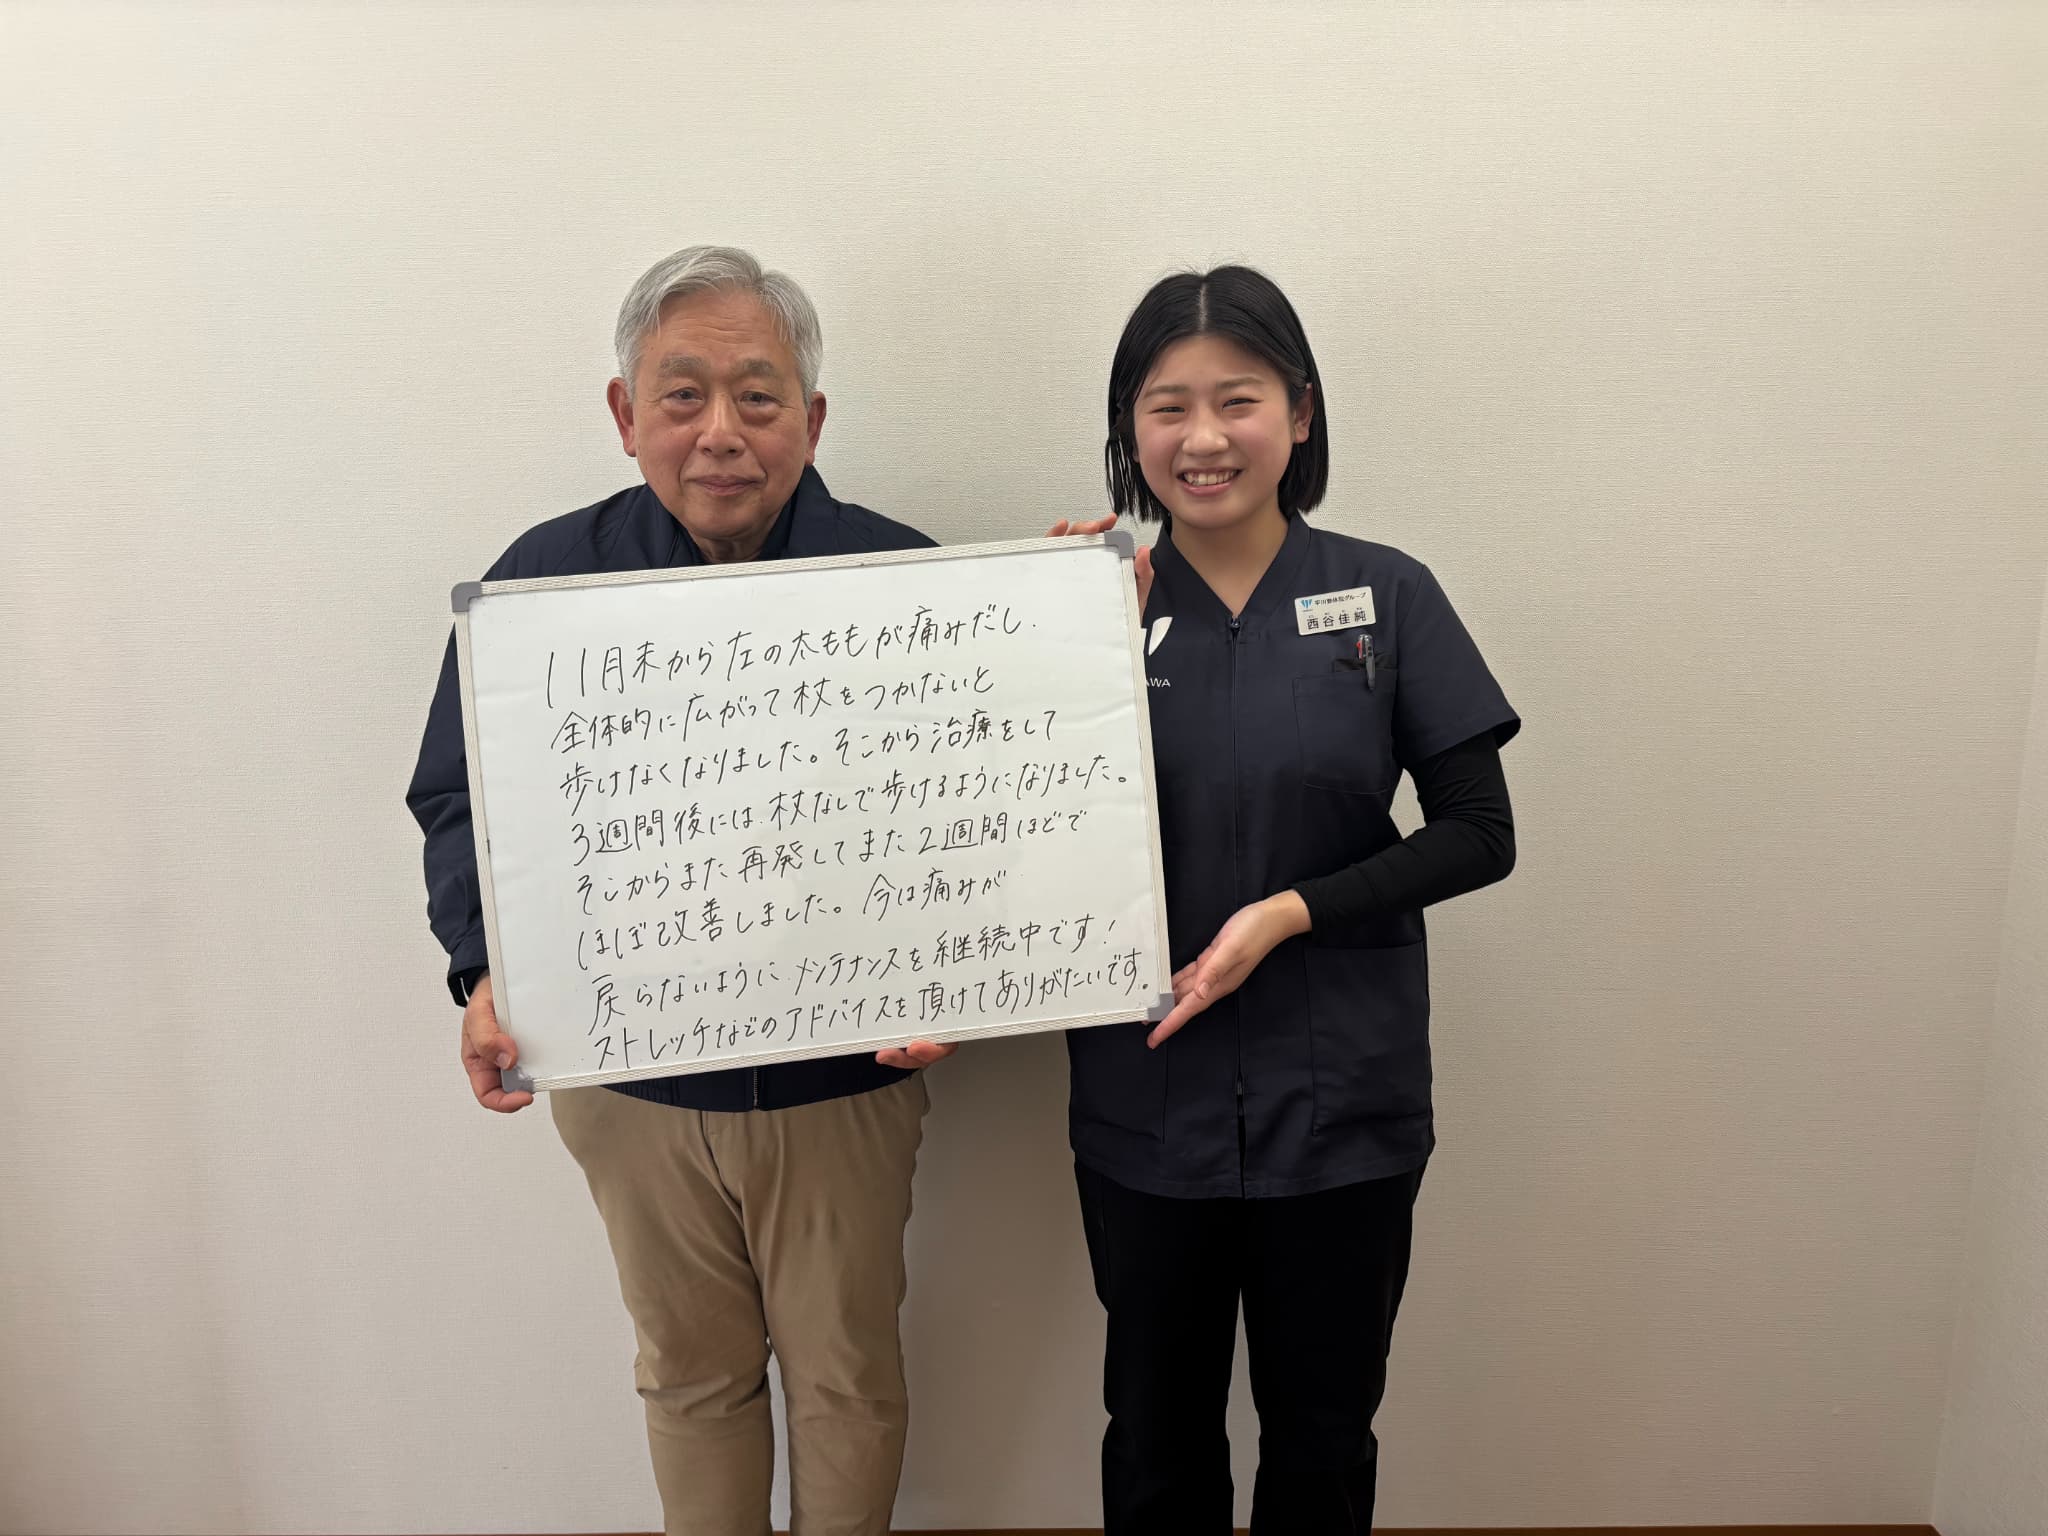 11月末から左の太ももが痛みだし.
全体的に広がって杖をつかないと
歩けなくなりました。そこから治療をして
3週間後には.杖なしで歩けるようになりました。
そこからまた再発してまた2週間ほどで
ほぼ改善しました。今は痛みが
戻らないように.メンテナンスを継続中です!
ストレッチなどのアドバイスを頂けてありがたいです。
平川整体院グループ
西谷佳純
AWA